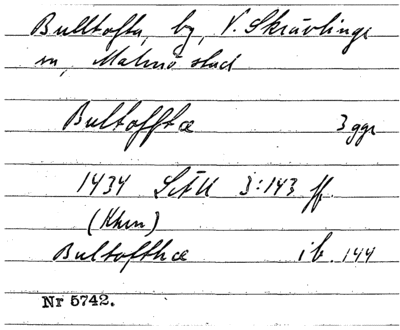 Bulltofta, by, V. Skrävlinge
sn, Malmö stad
Bultofftæ 3 ggr
1434 SRU 3:143 ff.
(Khvn)
Bultofthæ ib. 144
Nr 5742.